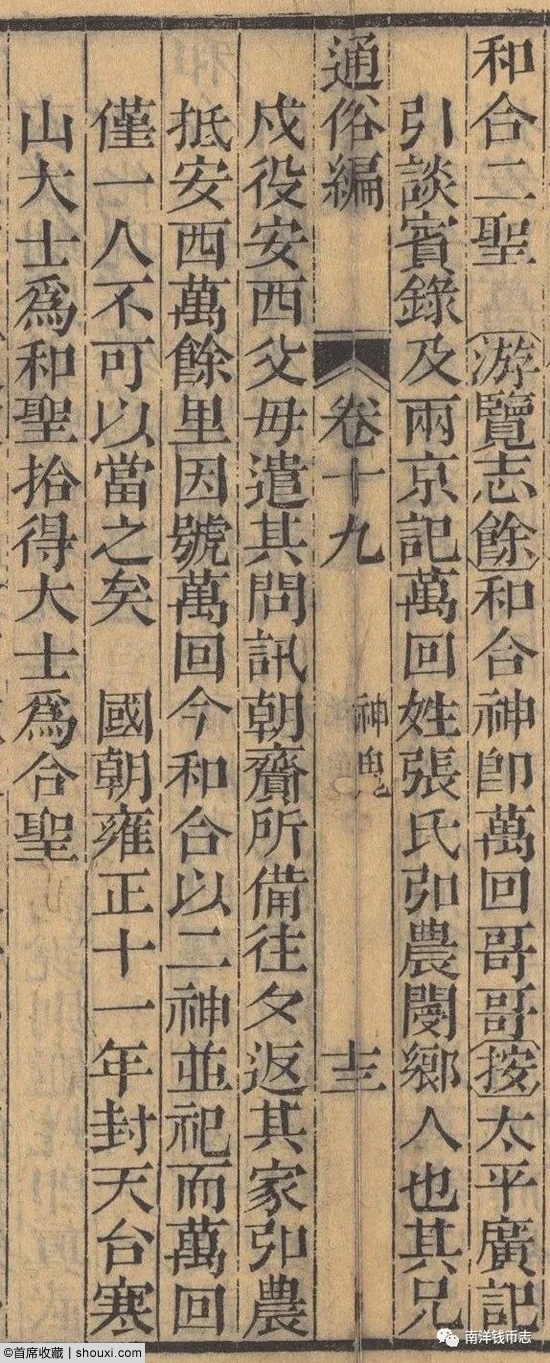 和合二聖 游覽志餘和合神卽萬回哥哥按太平廣記
引談賓錄及兩京記萬回姓張氏弘農閿鄉人也其兄
通俗編 卷十九 神鬼 十三
戍役安西父母遣其問訊朝齎所備往夕返其家弘農
抵安西萬餘里因號萬回今和合以二神並祀而萬回
僅一人不可以當之矣 國朝雍正十一年封天台寒
山大士爲和聖拾得大士爲合聖
©首席收藏 | shouxi.com
南洋钱币志